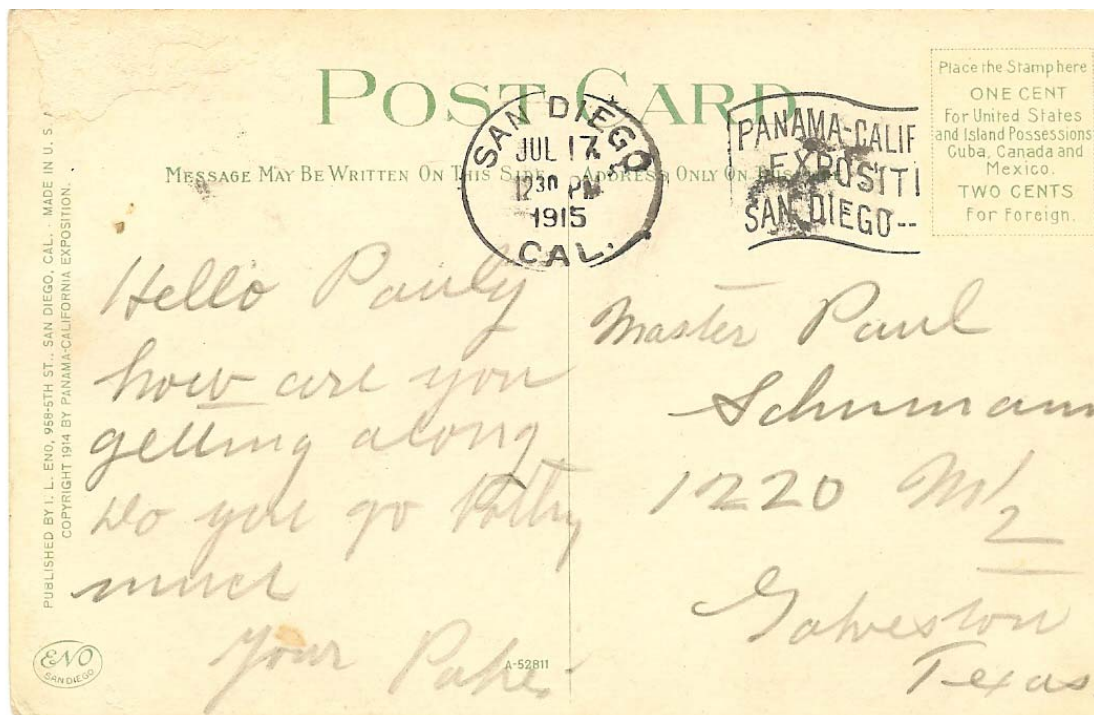 POST CARD
MESSAGE MAY BE WRITTEN ON THIS SIDE ADDRESS ONLY ON THIS
SAN DIEGO
JUL 17
12 30 PM
1915
CAL.
PANAMA-CALIF
EXPOSITI
SAN DIEGO--
Place the Stamp here
ONE CENT
For United States
and Island Possessions
Cuba, Canada and
Mexico.
TWO CENTS
For Foreign.
PUBLISHED BY I. L. ENO, 958-5TH ST., SAN DIEGO, CAL. - MADE IN U. S.
COPYRIGHT 1914 BY PANAMA-CALIFORNIA EXPOSITION.
Hello Pauly
how are you
getting along
Do you go
much
Your
Master Paul
Schumann
1220 M 1/2
Galveston
Texas
ENO
SAN DIEGO
A-52811